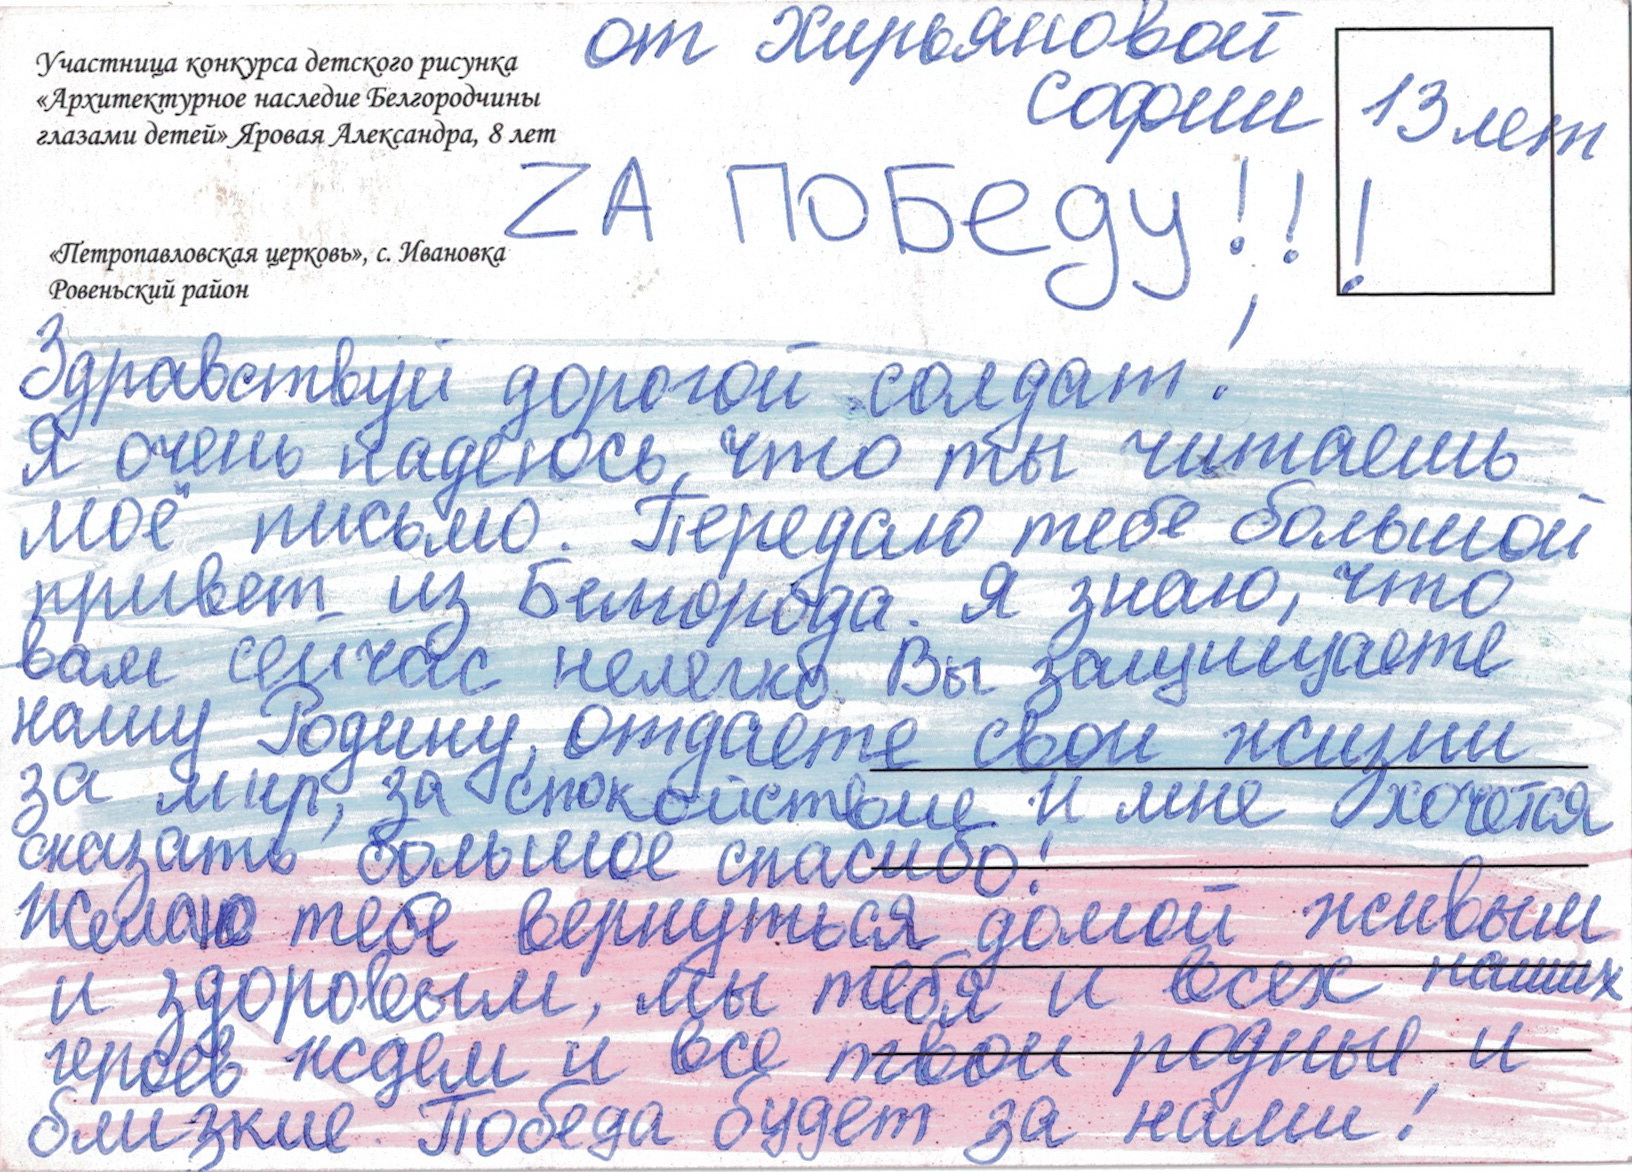 Участница конкурса детского рисунка
«Архитектурное наследие Белгородчины
глазами детей» Яровая Александра, 8 лет
«Петропавловская церковь», с. Ивановка
Ровеньский район
от Хирьяновой
Софии 13 лет
ZA ПОБЕДУ!!!
Здравствуй дорогой солдат!
Я очень надеюсь, что ты читаешь
моё письмо. Передаю тебе большой
привет из Белгорода. Я знаю, что
вам сейчас нелегко. Вы защищаете
нашу Родину, отдаёте свои жизни
за мир, за спокойствие и мне хочется
сказать большое спасибо!
Желаю тебе вернуться домой живым
и здоровым, мы тебя и всех наших
героев ждем и все твои родные и
близкие. Победа будет за нами!